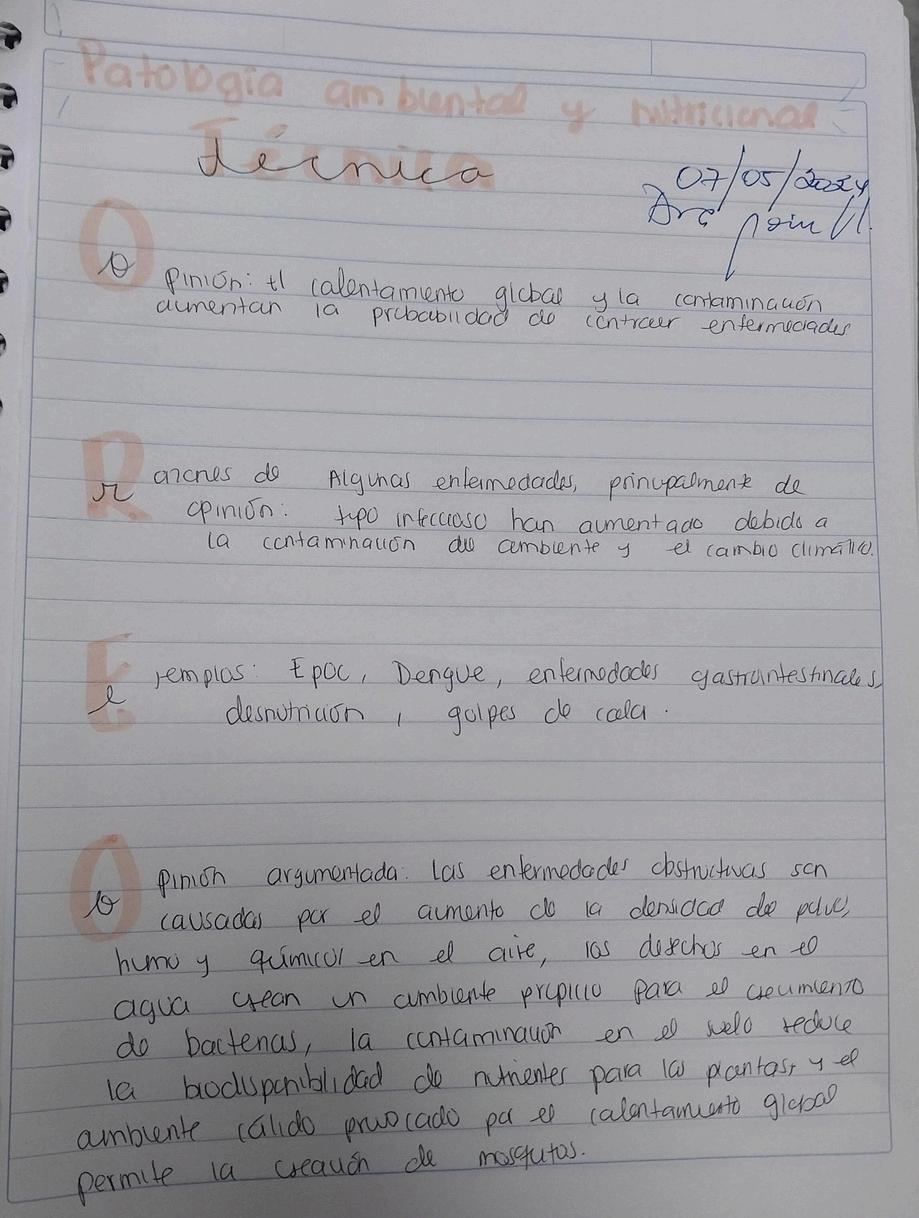 Patología ambiental y nutricional
Técnica
07/05/2024
O pinión: El calentamiento global y la contaminación
aumentan la probabilidad de contraer enfermedades
R azones de Algunas enfermedades, principalmente de
opinión: tipo infeccioso han aumentado debido a
la contaminación del ambiente y el cambio climático.
E jemplos: Epoc, Dengue, enfermedades gastrointestinales,
desnutrición, golpes de calor.
O pinión argumentada: las enfermedades obstructivas son
causadas por el aumento de la densidad de polvo,
humo y químicos en el aire, los desechos en el
agua crean un ambiente propicio para el crecimiento
de bacterias, la contaminación en el suelo reduce
la biodisponibilidad de nutrientes para las plantas, y el
ambiente cálido provocado por el calentamiento global
permite la creación de mosquitos.